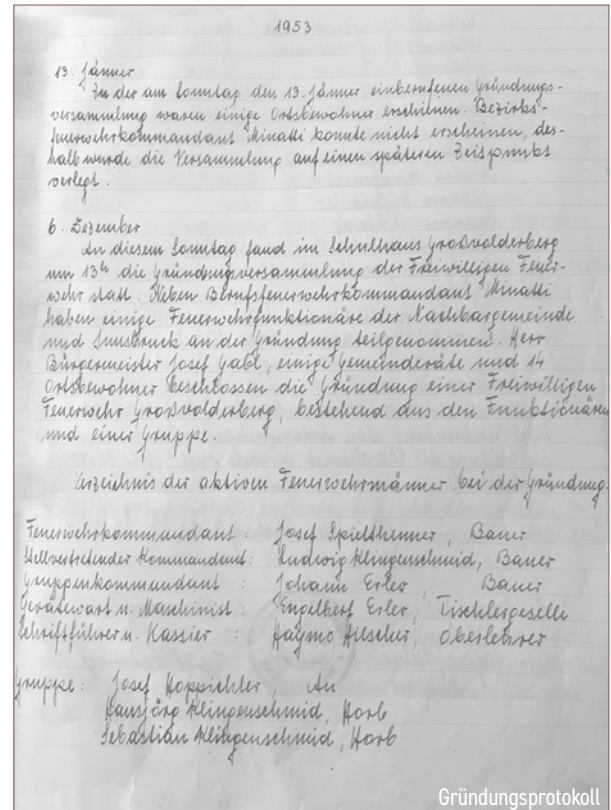 1953
13. Jänner
In der am Sonntag den 13. Jänner einberufenen Gründungs-
versammlung waren einige Ortsbewohner erschienen. Bezirks-
feuerwehrkommandant Minatti konnte nicht erscheinen, des-
halb wurde die Versammlung auf einen späteren Zeitpunkt
verlegt.
6. Dezember
An diesem Sonntag fand im Schulhaus Großvolderberg
um 13h die Gründungsversammlung der Freiwilligen Feuer-
wehr statt. Neben Berufsfeuerwehrkommandant Minatti
haben einige Feuerwehrfunktionäre der Nachbargemeinde
und Innsbruck an der Gründung teilgenommen. Herr
Bürgermeister Josef Gabl, einige Gemeinderäte und 14
Ortsbewohner beschlossen die Gründung einer Freiwilligen
Feuerwehr Großvolderberg, bestehend aus den Funktionären
und einer Gruppe.
Verzeichnis der aktiven Feuerwehrmänner bei der Gründung.
Feuerwehrkommandant: Josef Spielthenner, Bauer
Stellvertretender Kommandant: Ludwig Klingenschmid, Bauer
Gruppenkommandant: Johann Erler, Bauer
Gerätewart u. Maschinist: Engelbert Erler, Tischlergeselle
Schriftführer u. Kassier: Haymo Hilscher, Oberlehrer
Gruppe: Josef Hoppichler, Au
Hansjörg Klingenschmid, Horb
Sebastian Klingenschmid, Horb
Gründungsprotokoll